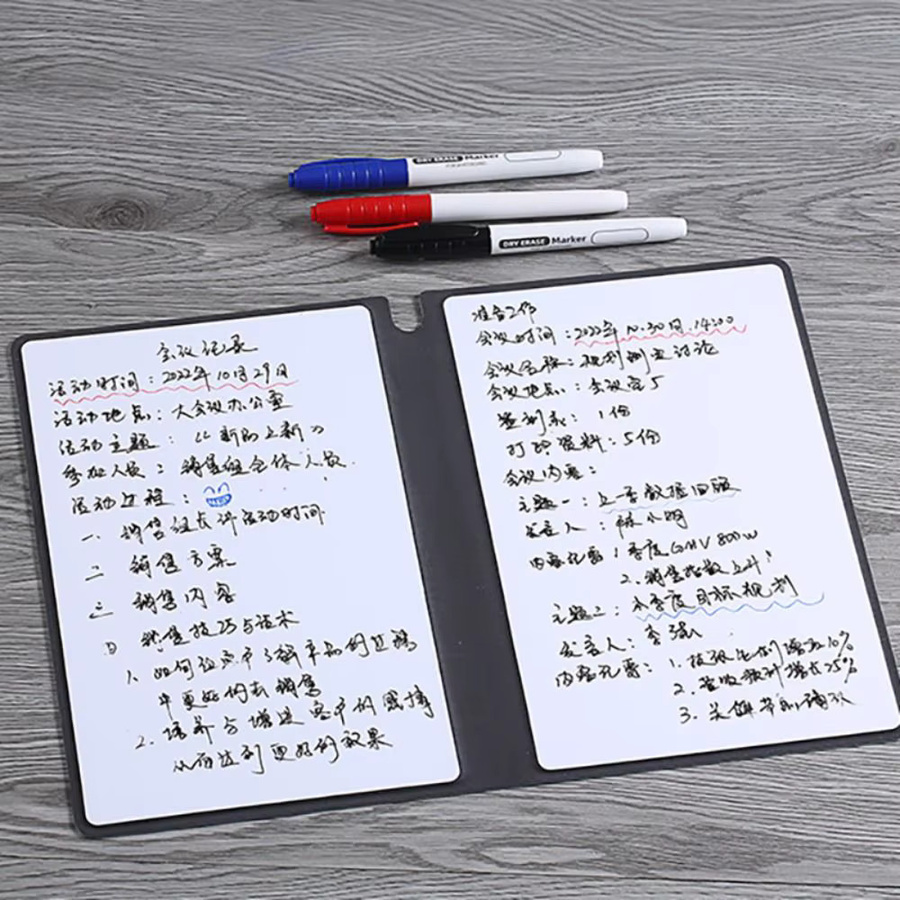 DRY ERASE Marker
DRY ERASE Marker
会议记录
活动时间：2022年10月29日
活动地点：大会议办公室
活动主题：《新品上新》
参加人员：销售组全体人员
活动过程：
一、销售组长讲活动时间
二 销售方案
三 销售内容
四 销售技巧与话术
1. 如何让客户了解产品的过程
中更好的去销售
2. 培养与增进客户的感情
从而达到更好的效果
准备工作
会议时间：2022年10.30日.14:00
会议名称：规划制定讨论
会议地点：会议室5
签到表：1份
打印资料：5份
会议内容：
主题一：上一季数据回顾
发言人：林小明
内容记要：1季度GMV 800w
2. 销售指数上升
主题二：本季度目标规划
发言人：李强
内容记要：1. 比例增加10%
2. 增长25%
3.